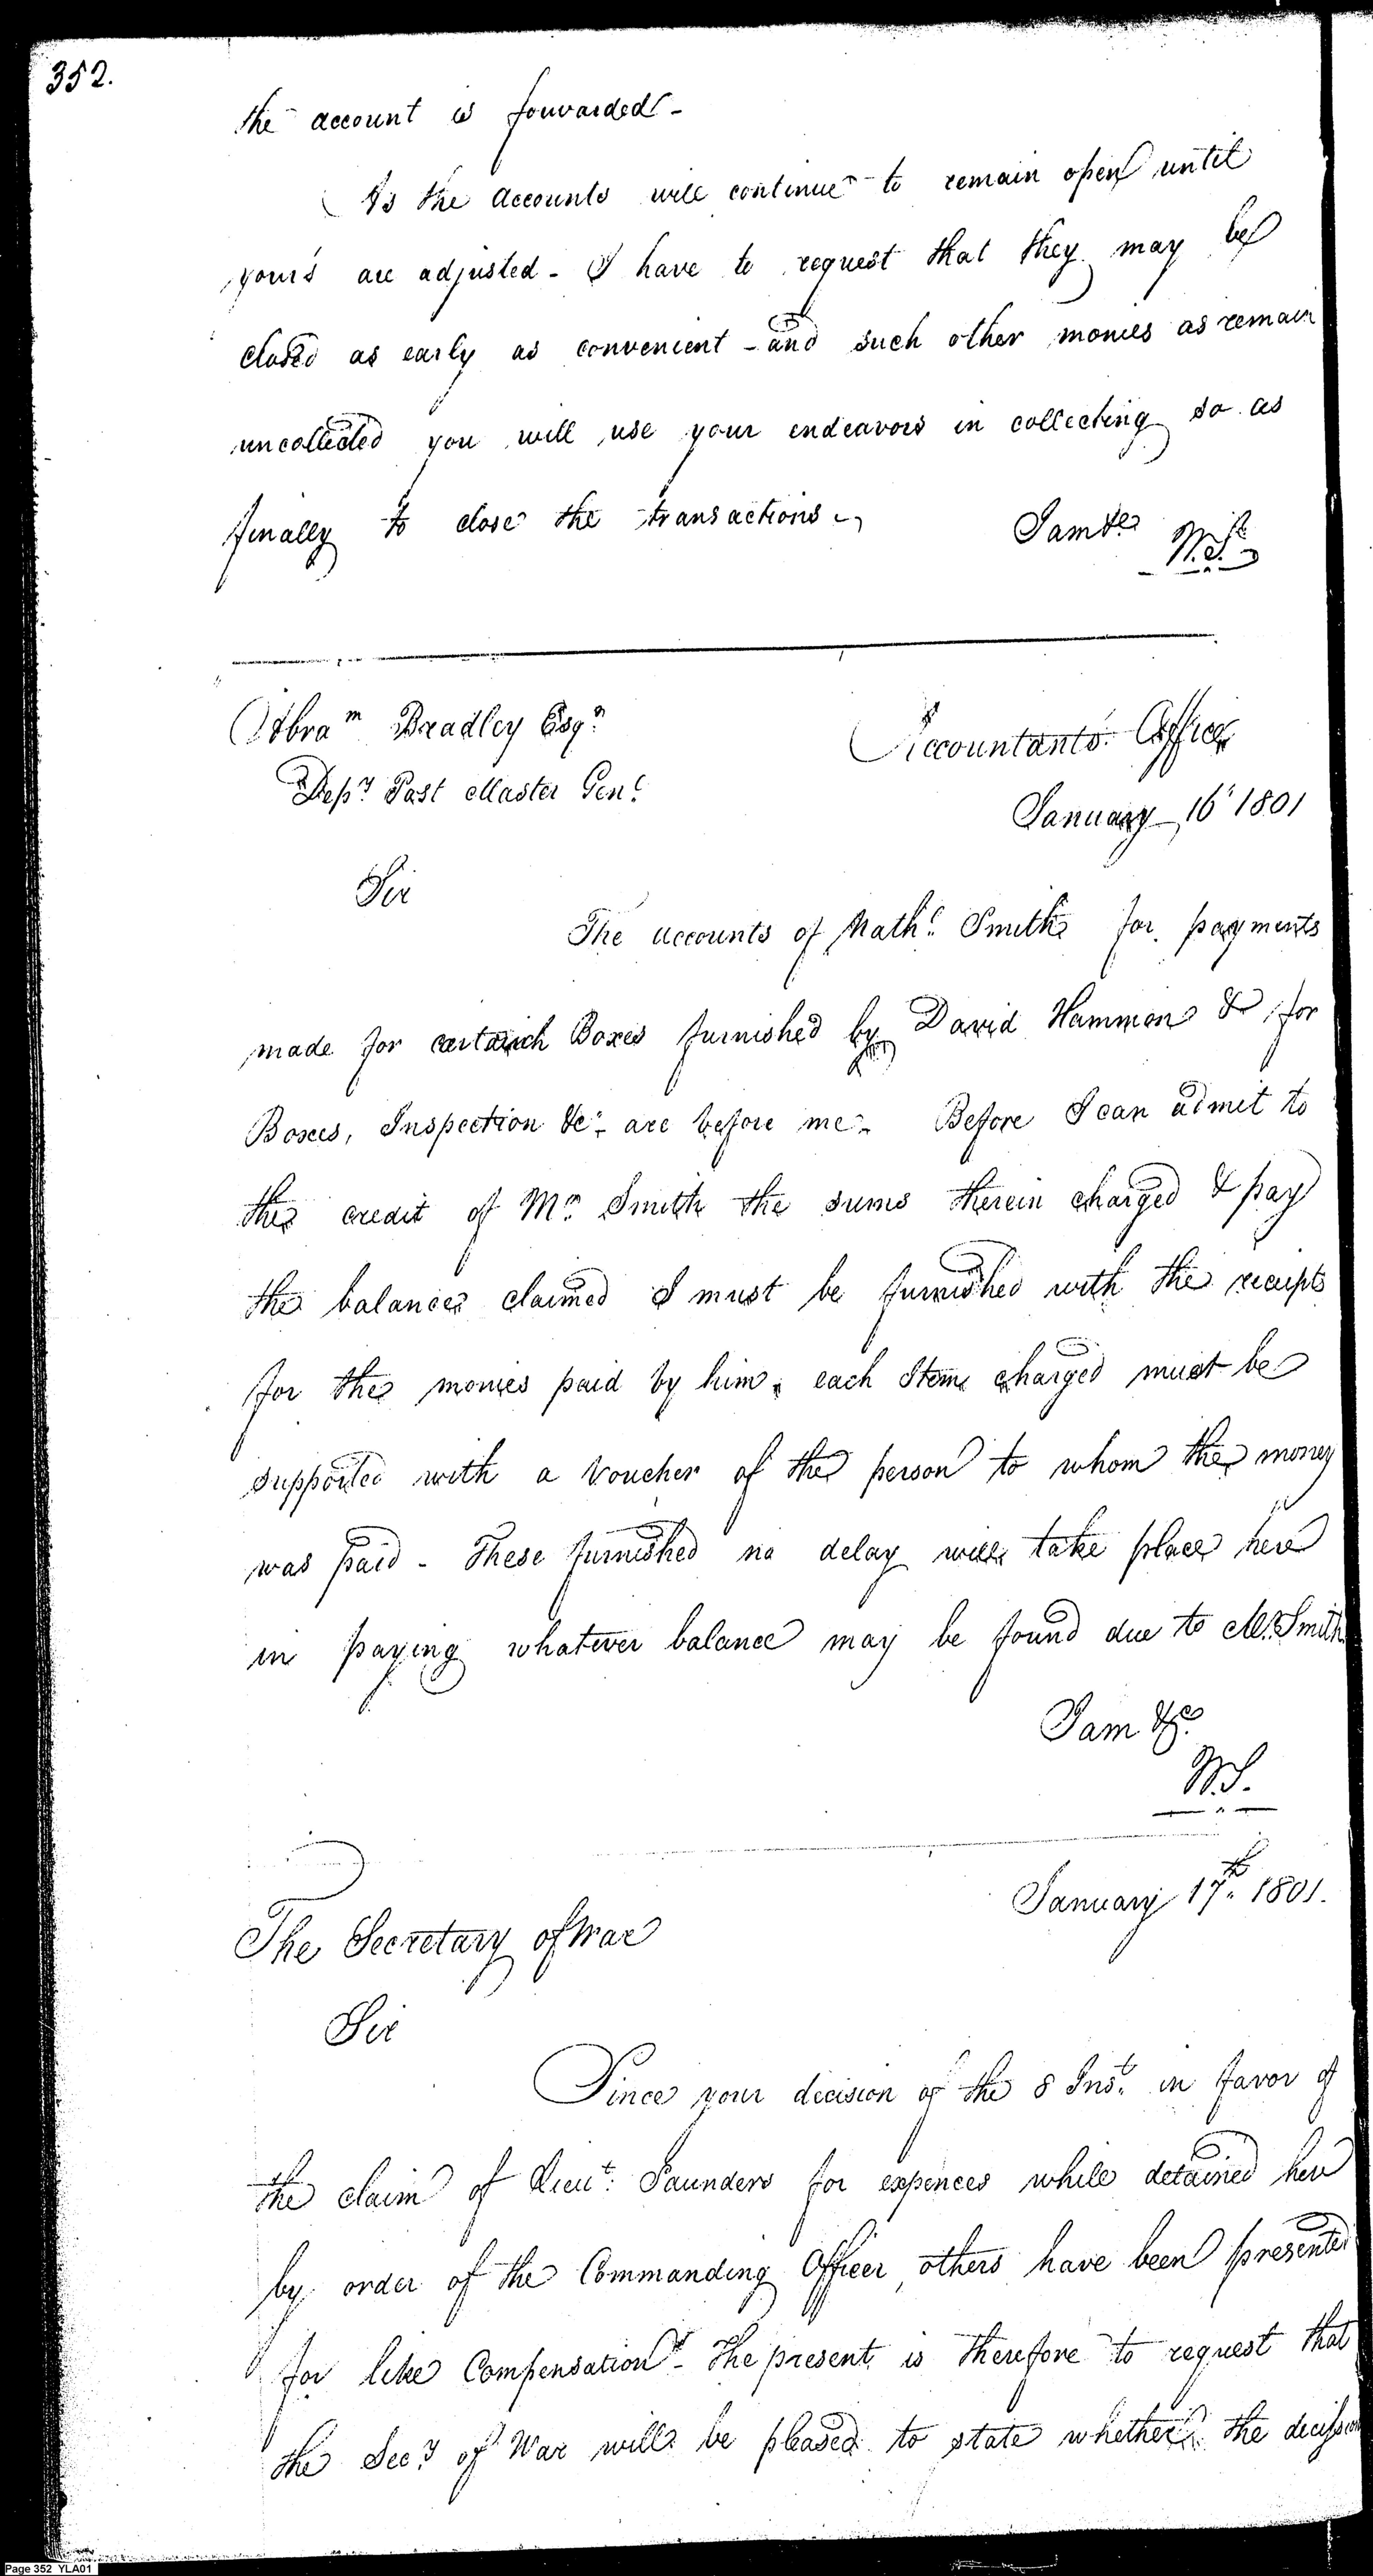 352.
the account is forwarded -
As the Accounts will continue to remain open until
yours are adjusted - I have to request that they may be
closed as early as convenient - and such other monies as remain
uncollected you will use your endeavors in collecting so as
finally to close the transactions -
I am &c
W.S.
Abram Bradley Esqr
Accountants Office
Depy Post Master Genl
January 16 1801
Sir
The accounts of Nathl Smith for payments
made for Boxes furnished by David Hammon & for
Boxes, Inspection &c - are before me - Before I can admit to
the credit of Mr Smith the sums therein charged & pay
the balances claimed I must be furnished with the receipts
for the monies paid by him, each Item charged must be
supported with a Voucher of the person to whom the money
was paid - These furnished no delay will take place here
in paying whatever balance may be found due to Mr. Smith
I am &c.
W.S.
January 17th 1801.
The Secretary of War
Sir
Since your decision of the 8 Inst. in favor of
the claim of Lieut: Saunders for expences while detained here
by order of the Commanding Officer, others have been presented
for like Compensation - The present is therefore to request that
the Secy of War will be pleased to state whether the decission
Page 352 YLA01